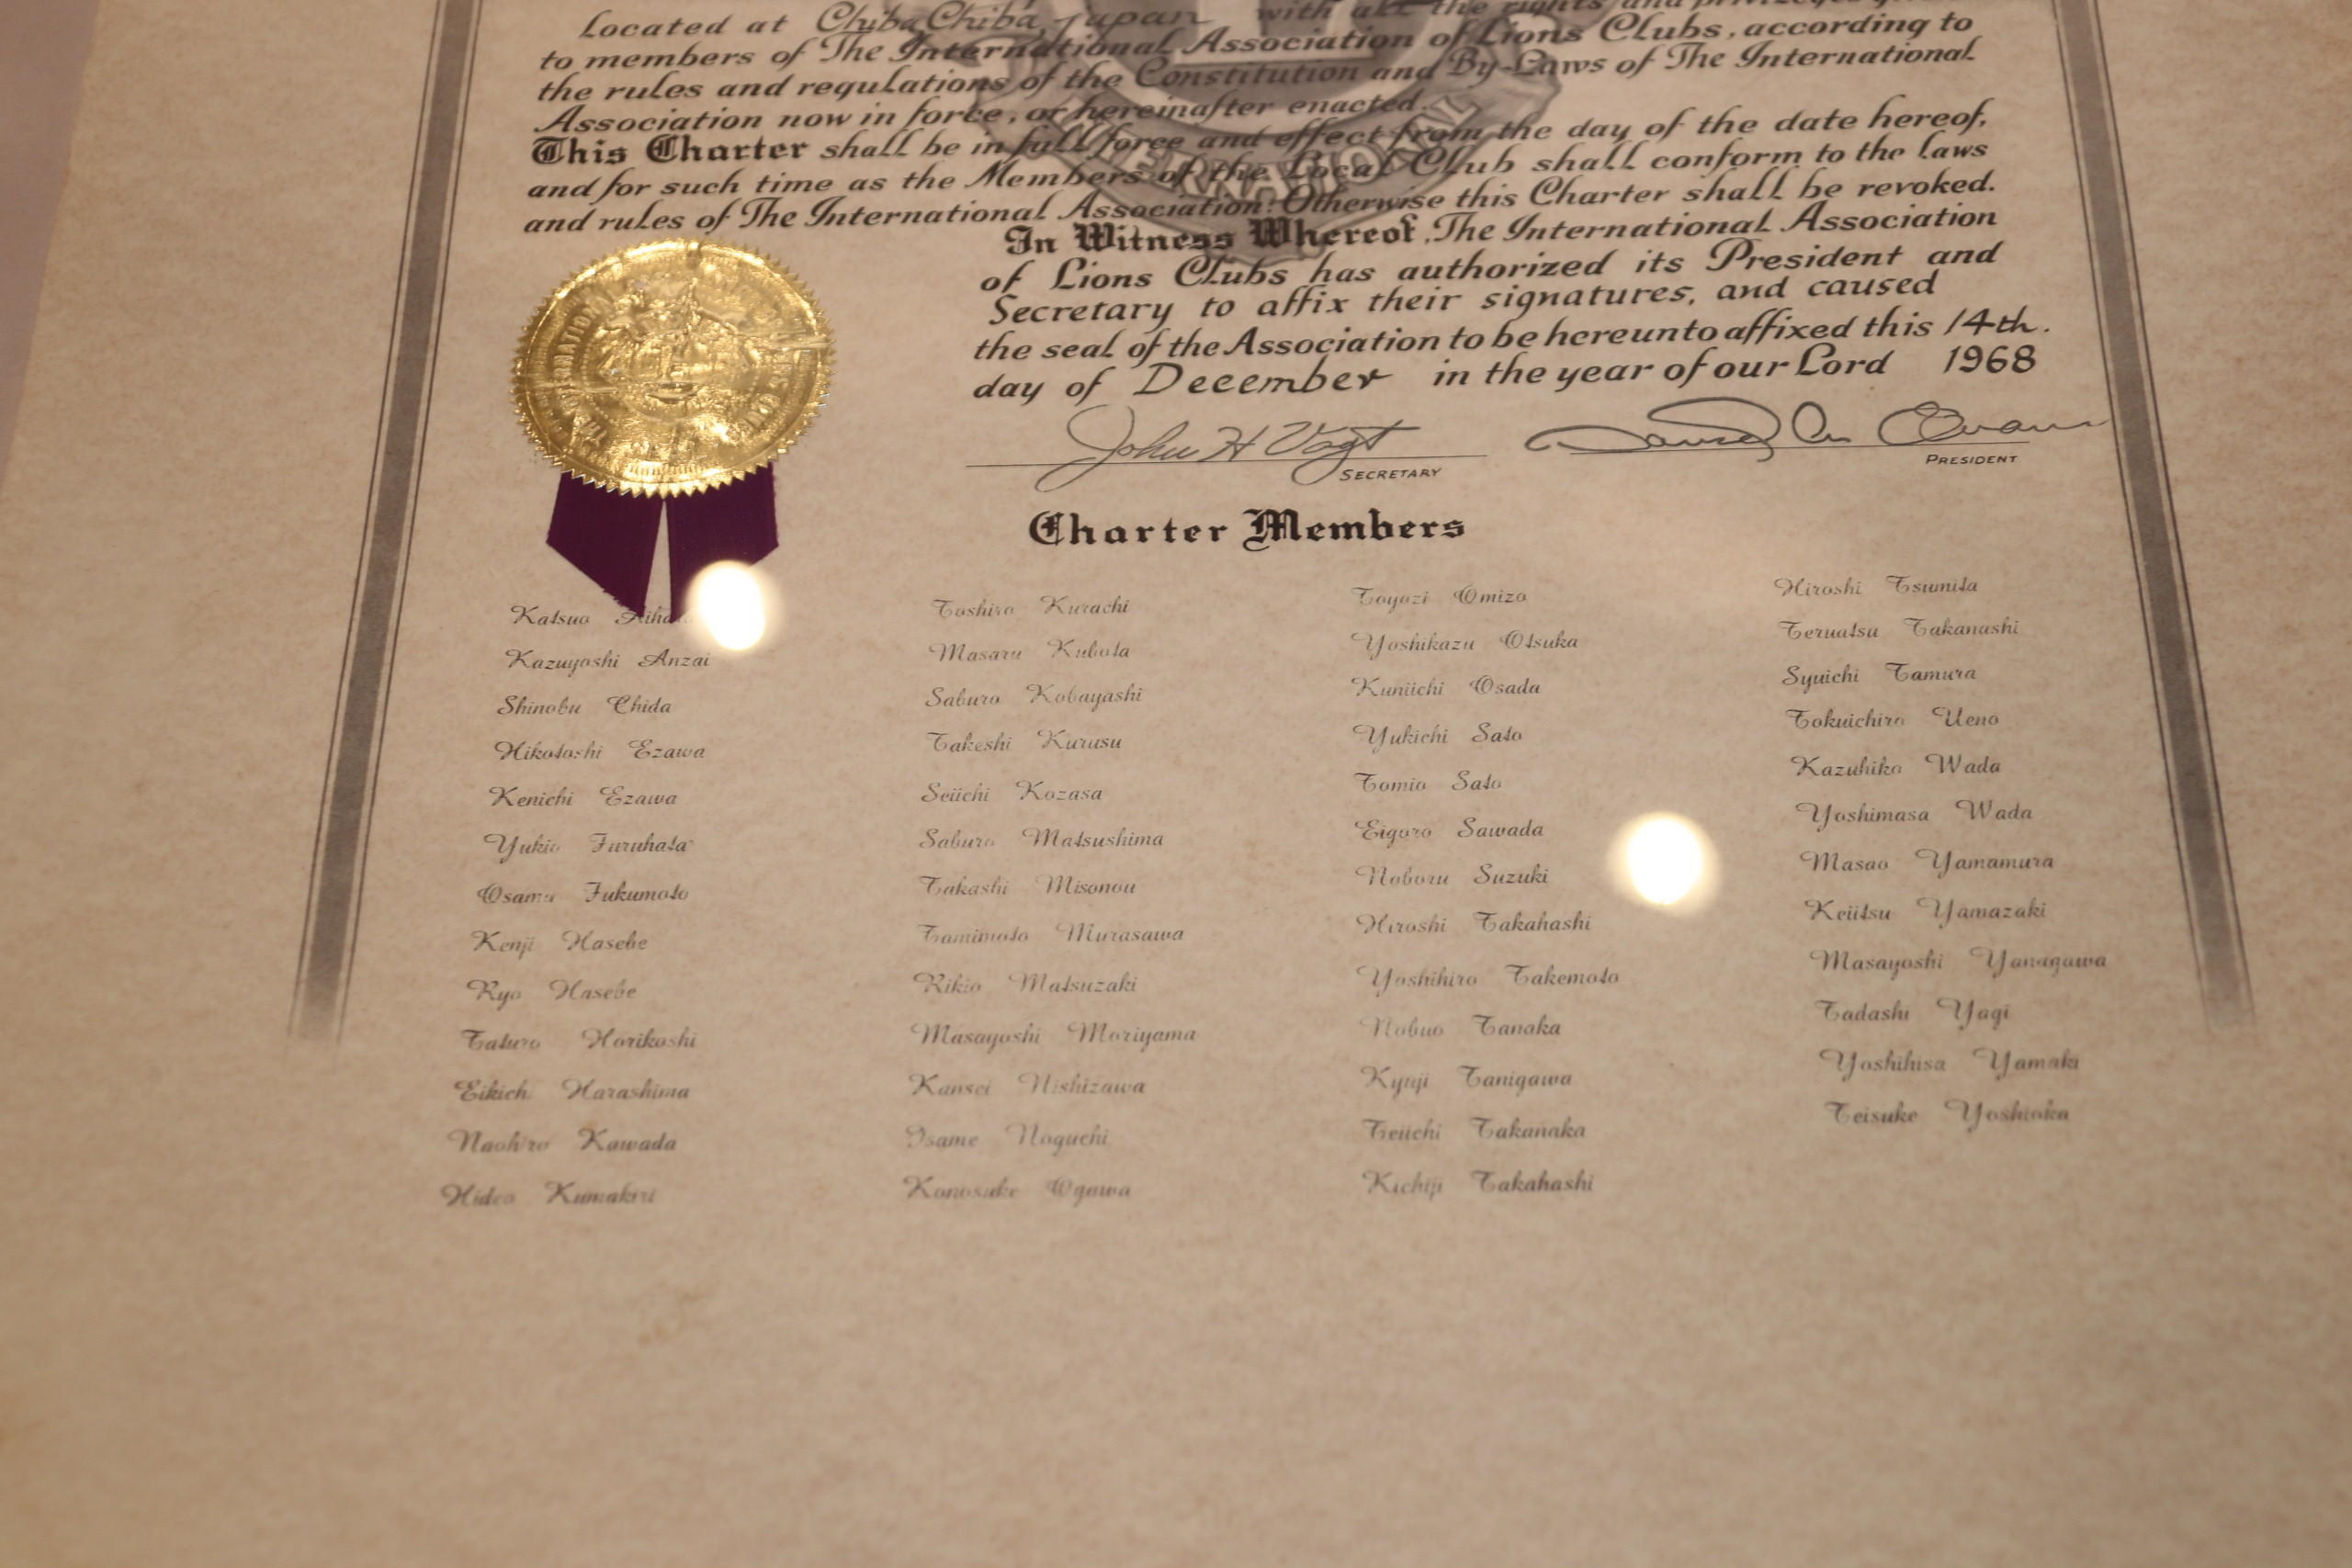 Located at Chiba, Chiba, Japan with all the rights and privileges
to members of The International Association of Lions Clubs, according to
the rules and regulations of the Constitution and By-Laws of The International
Association now in force, or hereinafter enacted.
This Charter shall be in full force and effect from the day of the date hereof,
and for such time as the Members of the Local Club shall conform to the laws
and rules of The International Association. Otherwise this Charter shall be revoked.
In Witness Whereof, The International Association
of Lions Clubs has authorized its President and
Secretary to affix their signatures, and caused
the seal of the Association to be hereunto affixed this 14th.
day of December in the year of our Lord 1968
John H Vogt
SECRETARY
PRESIDENT
Charter Members
Katsuo
Kazuyoshi Anzai
Shinobu Chida
Hikotoshi Ezawa
Kenichi Ezawa
Yukio Furuhata
Osamu Fukumoto
Kenji Hasebe
Ryo Hasebe
Taturo Horikoshi
Eikichi Harashima
Naohiro Kawada
Hideo Kumakiri
Toshiro Kurachi
Masaru Kubota
Saburo Kobayashi
Takeshi Kurusu
Seiichi Kozasa
Saburo Matsushima
Takashi Misonou
Tamimoto Murasawa
Rikio Matsuzaki
Masayoshi Moriyama
Kansei Nishizawa
Isame Noguchi
Konosuke Ogawa
Toyozi Omizo
Yoshikazu Otsuka
Kuniichi Osada
Yukichi Sato
Tomio Sato
Eigoro Sawada
Noboru Suzuki
Hiroshi Takahashi
Yoshihiro Takemoto
Nobuo Tanaka
Kyuji Tanigawa
Teiichi Takanaka
Kichiji Takahashi
Hiroshi Tsumita
Teruatsu Takanashi
Syuichi Tamura
Tokuichiro Ueno
Kazuhiko Wada
Yoshimasa Wada
Masao Yamamura
Keiitsu Yamazaki
Masayoshi Yanagawa
Tadashi Yagi
Yoshihisa Yamaki
Teisuke Yoshioka